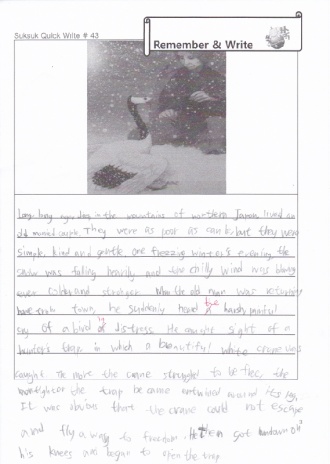 Suksuk Quick Write # 43
Remember & Write
Long long ago deep in the mountains of northern Japan lived an
old married couple. They were as poor as can be but they were
simple, kind and gentle. one freezing winter's evening the
snow was falling heavily and the chilly wind was blowing
even colder and stronger. When the old man was returning
home from town, he suddenly heard the harsh painful
cry of a bird in distress. He caught sight of a
hunter's trap in which a beautiful white crane was
caught. The more the crane struggled to be free, the
more tighter the trap became entwined around its leg,
It was obvious that the crane could not escape
and fly away to freedom. He then got down on
his knees and began to open the trap